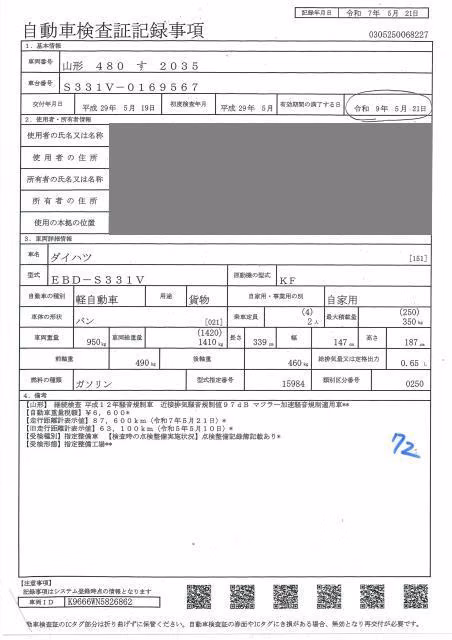 記録年月日 令和 7年 5月 21日
自動車検査証記録事項
0305250068227
1. 基本情報
車両番号 山形 480 す 2035
車台番号 S331V-0169567
交付年月日 平成 29年 5月 19日 初度検査年月 平成 29年 5月 有効期間の満了する日 令和 9年 5月 21日
2. 使用者・所有者情報
使用者の氏名又は名称
使用者の住所
所有者の氏名又は名称
所有者の住所
使用の本拠の位置
3. 車両詳細情報
車名 ダイハツ [151]
型式 EBD-S331V 原動機の型式 KF
自動車の種別 軽自動車 用途 貨物 自家用・事業用の別 自家用
車体の形状 バン [021] 乗車定員 (4) 2人 最大積載量 (250) 350kg
車両重量 950kg 車両総重量 (1420) 1410kg 長さ 339cm 幅 147cm 高さ 187cm
前軸重 490kg 後軸重 460kg 総排気量又は定格出力 0.65 L
燃料の種類 ガソリン 型式指定番号 15984 類別区分番号 0250
4. 備考
【山形】 継続検査 平成12年騒音規制車 近接排気騒音規制値97dB マフラー加速騒音規制適用車**
【自動車重量税額】¥6,600*
【走行距離計表示値】87,600km(令和7年5月21日)*
【旧走行距離計表示値】63,100km(令和5年5月10日)*
【受検種別】指定整備車 【検査時の点検整備実施状況】点検整備記録簿記載あり*
【受検形態】指定整備工場**
72
【注意事項】
記録事項はシステム登録時点の情報となります
車両ID K9666WN5826862
動車検査証のICタグ部分は折り曲げずに保管ください。自動車検査証の券面やICタグにき損がある場合、無効となり再交付が必要です。